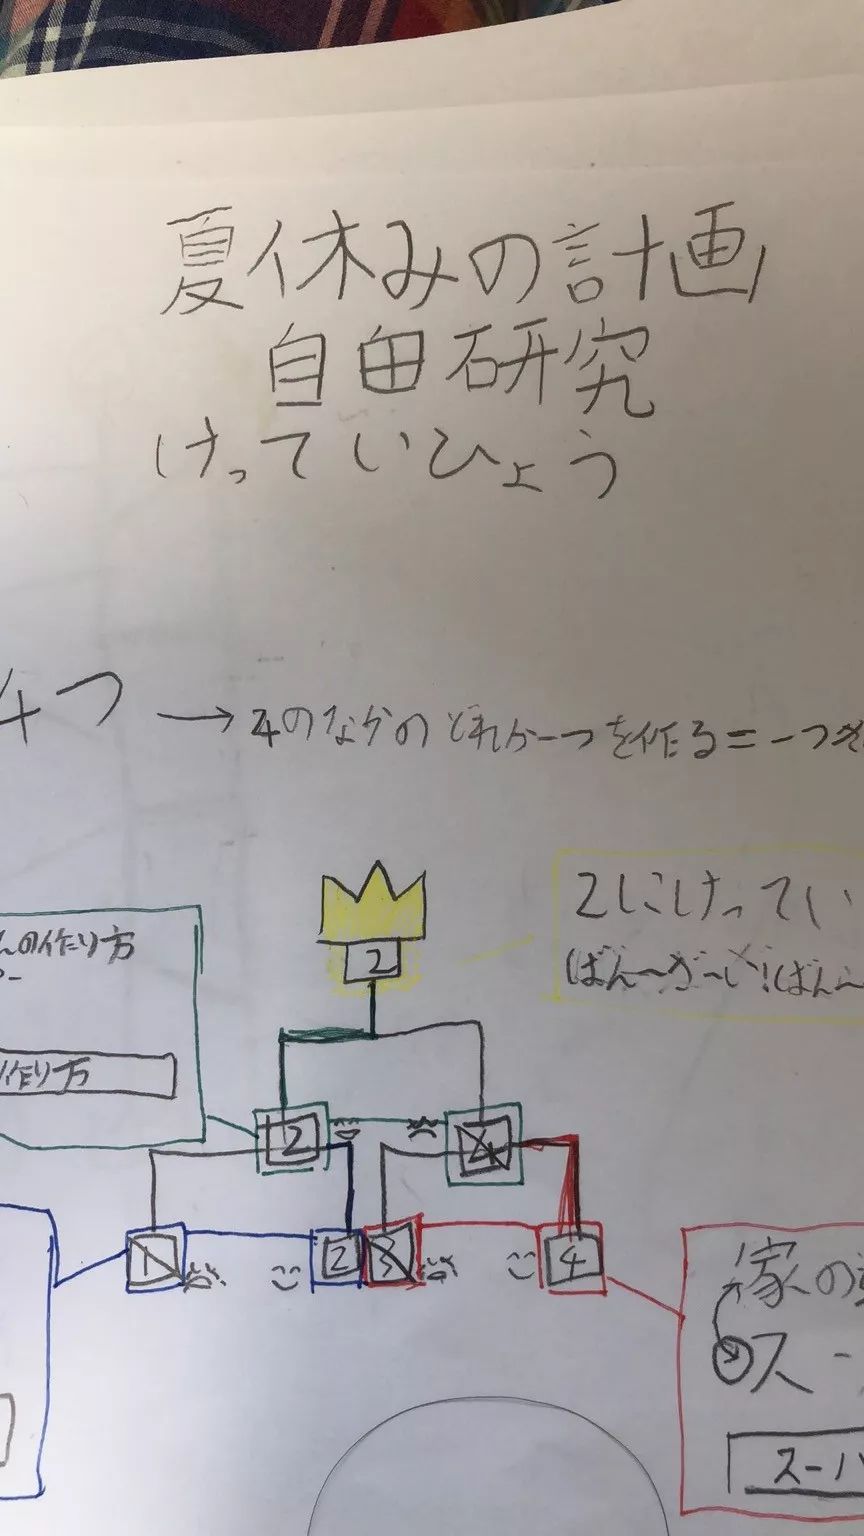 夏休みの計画
自由研究
けっていひょう
4つ → 4のなかのどれか一つを作る=一つ
2にけってい
ばん〜ざ〜い!ばん〜
2
んの作り方
作り方
2
4
1
2
3
4
の
ス-
スーパ